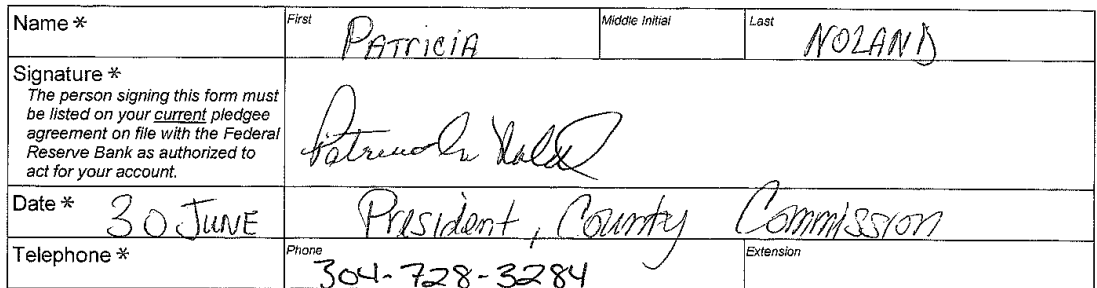 Name * First Middle Initial Last
PATRICIA NOLAND
Signature *
The person signing this form must
be listed on your current pledgee
agreement on file with the Federal
Reserve Bank as authorized to
act for your account.
Date * 30 JUNE President, County Commission
Telephone * Phone Extension
304-728-3284